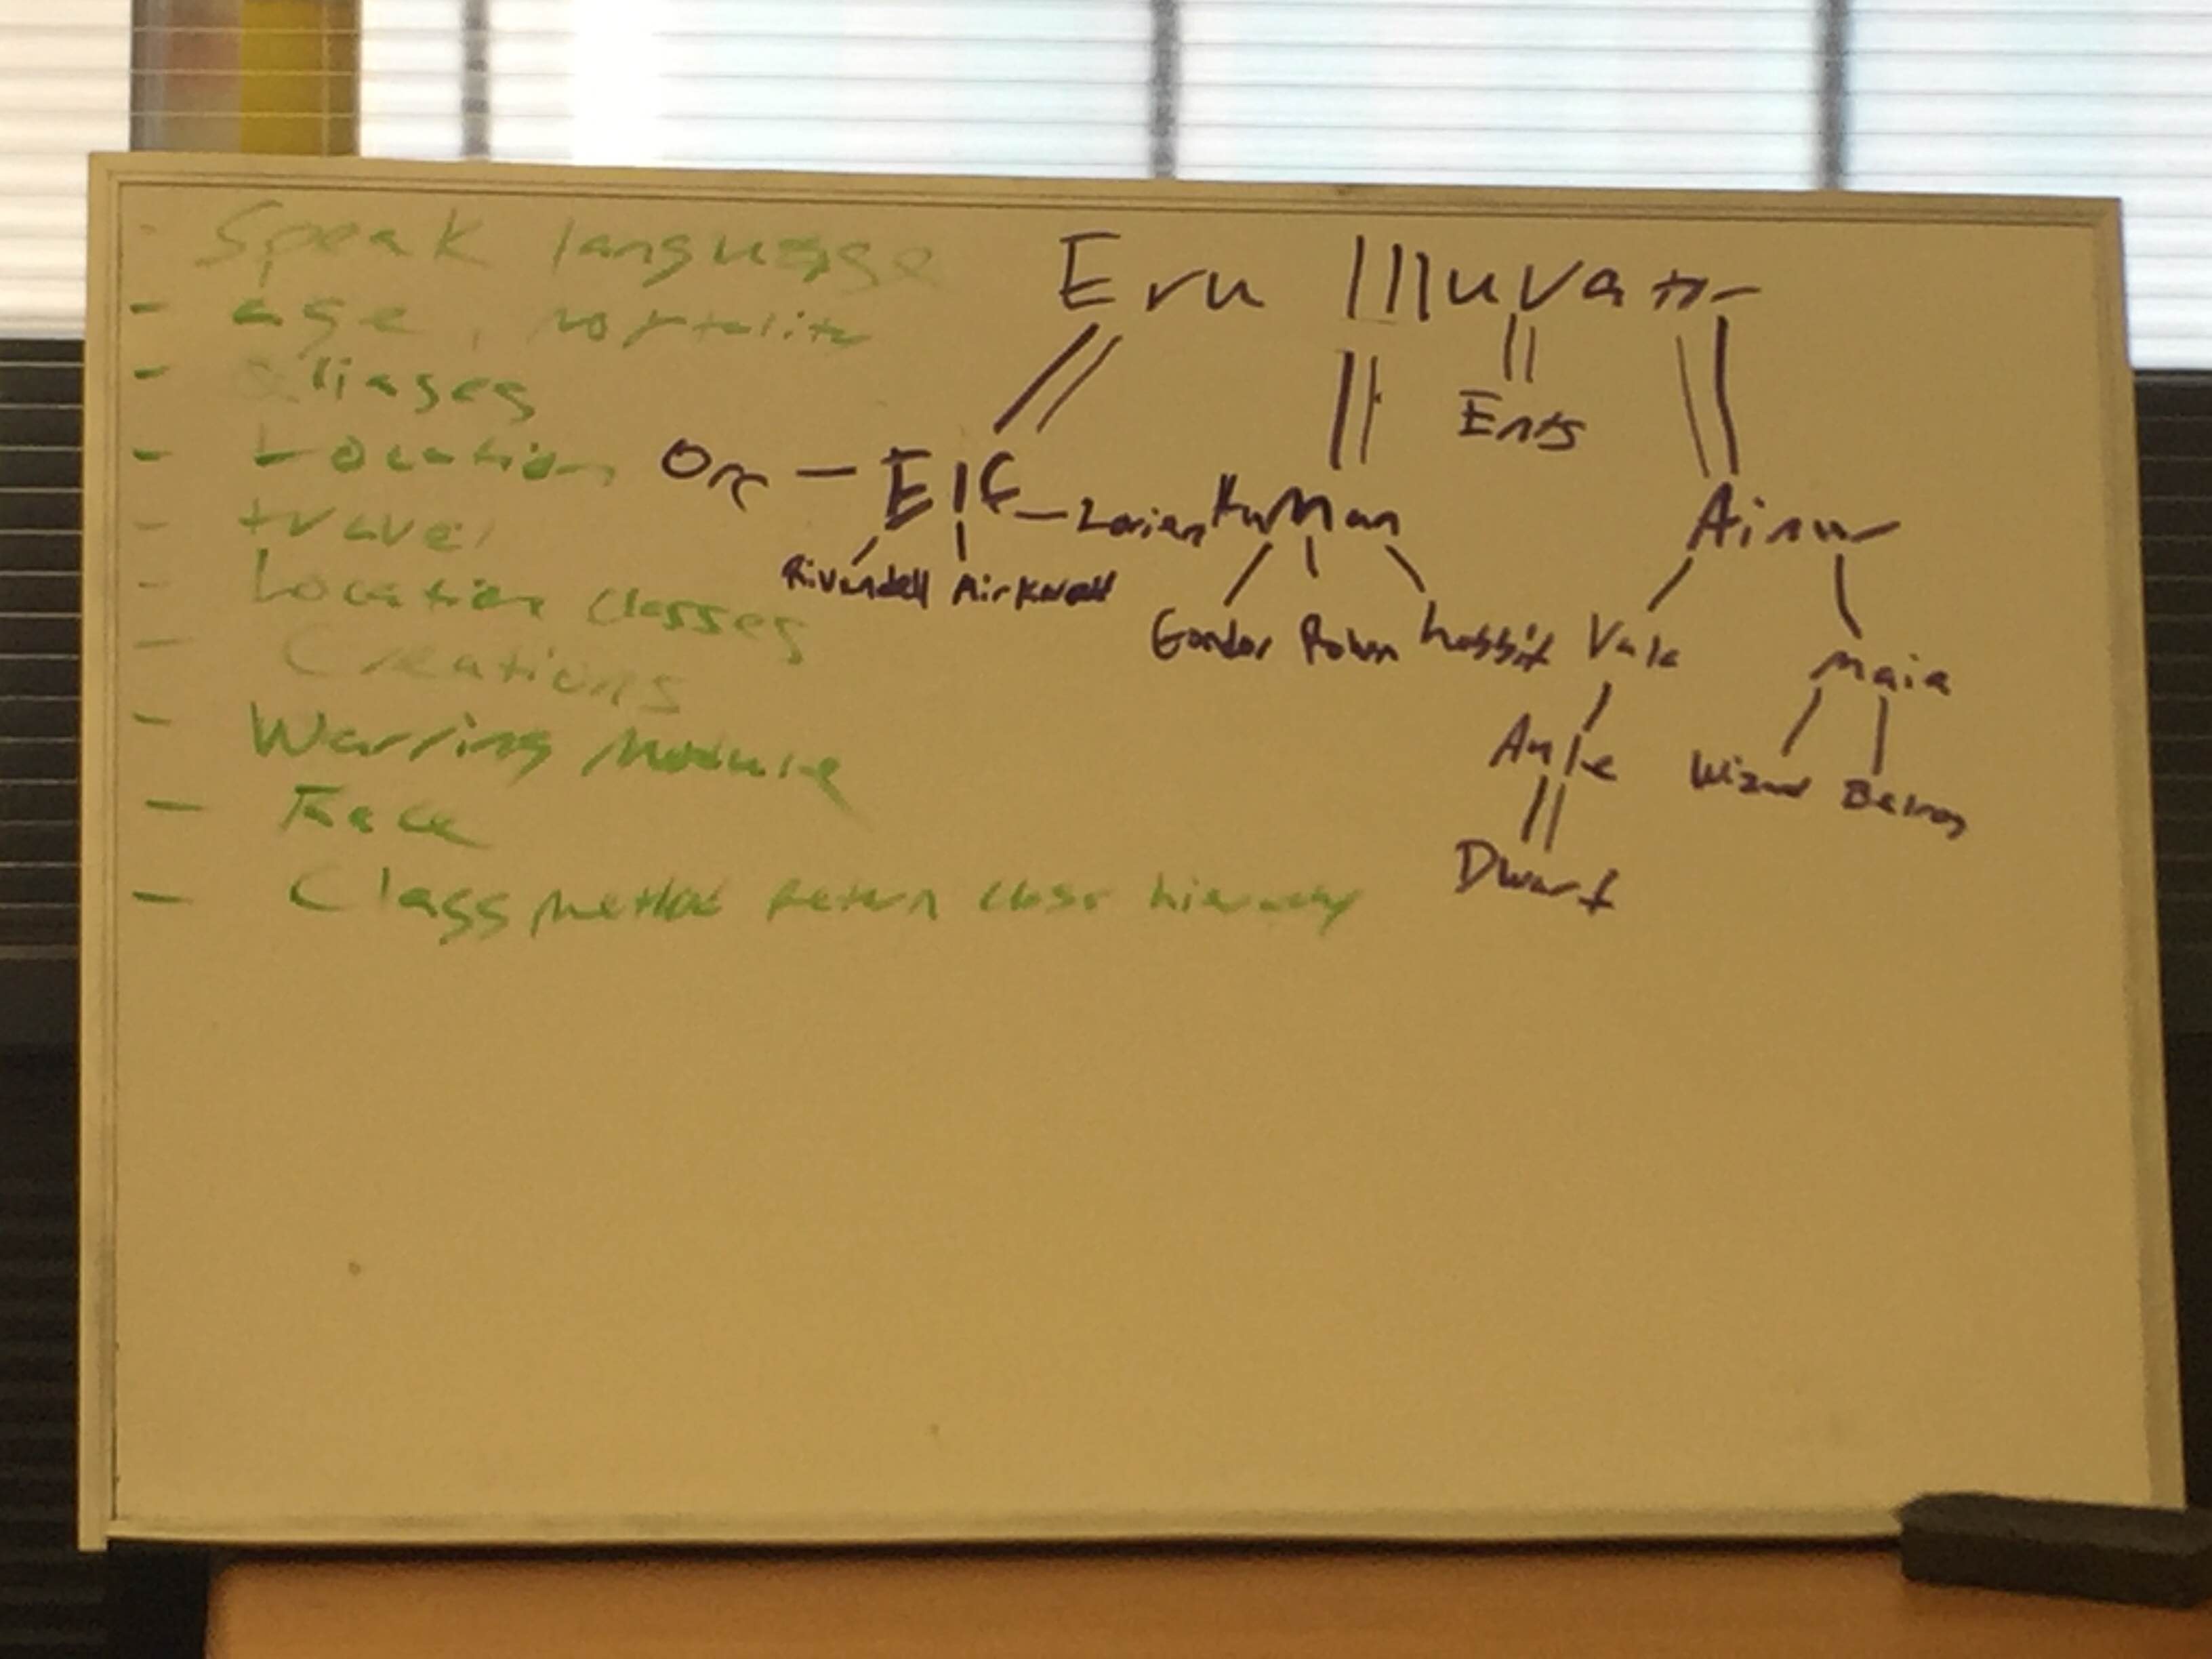 Speak language
- age, mortality
- aliases
- Location
- travel
- Location classes
- Creations
- Warring Module
- Race
- Class method return class hierarchy
Eru Illuvatr
Ents
Orc - Elf - Lorien Human Ainur
Rivendell
Gondor Rohan hobbit Vala Maia
Aule Wizard Balrog
Dwarf